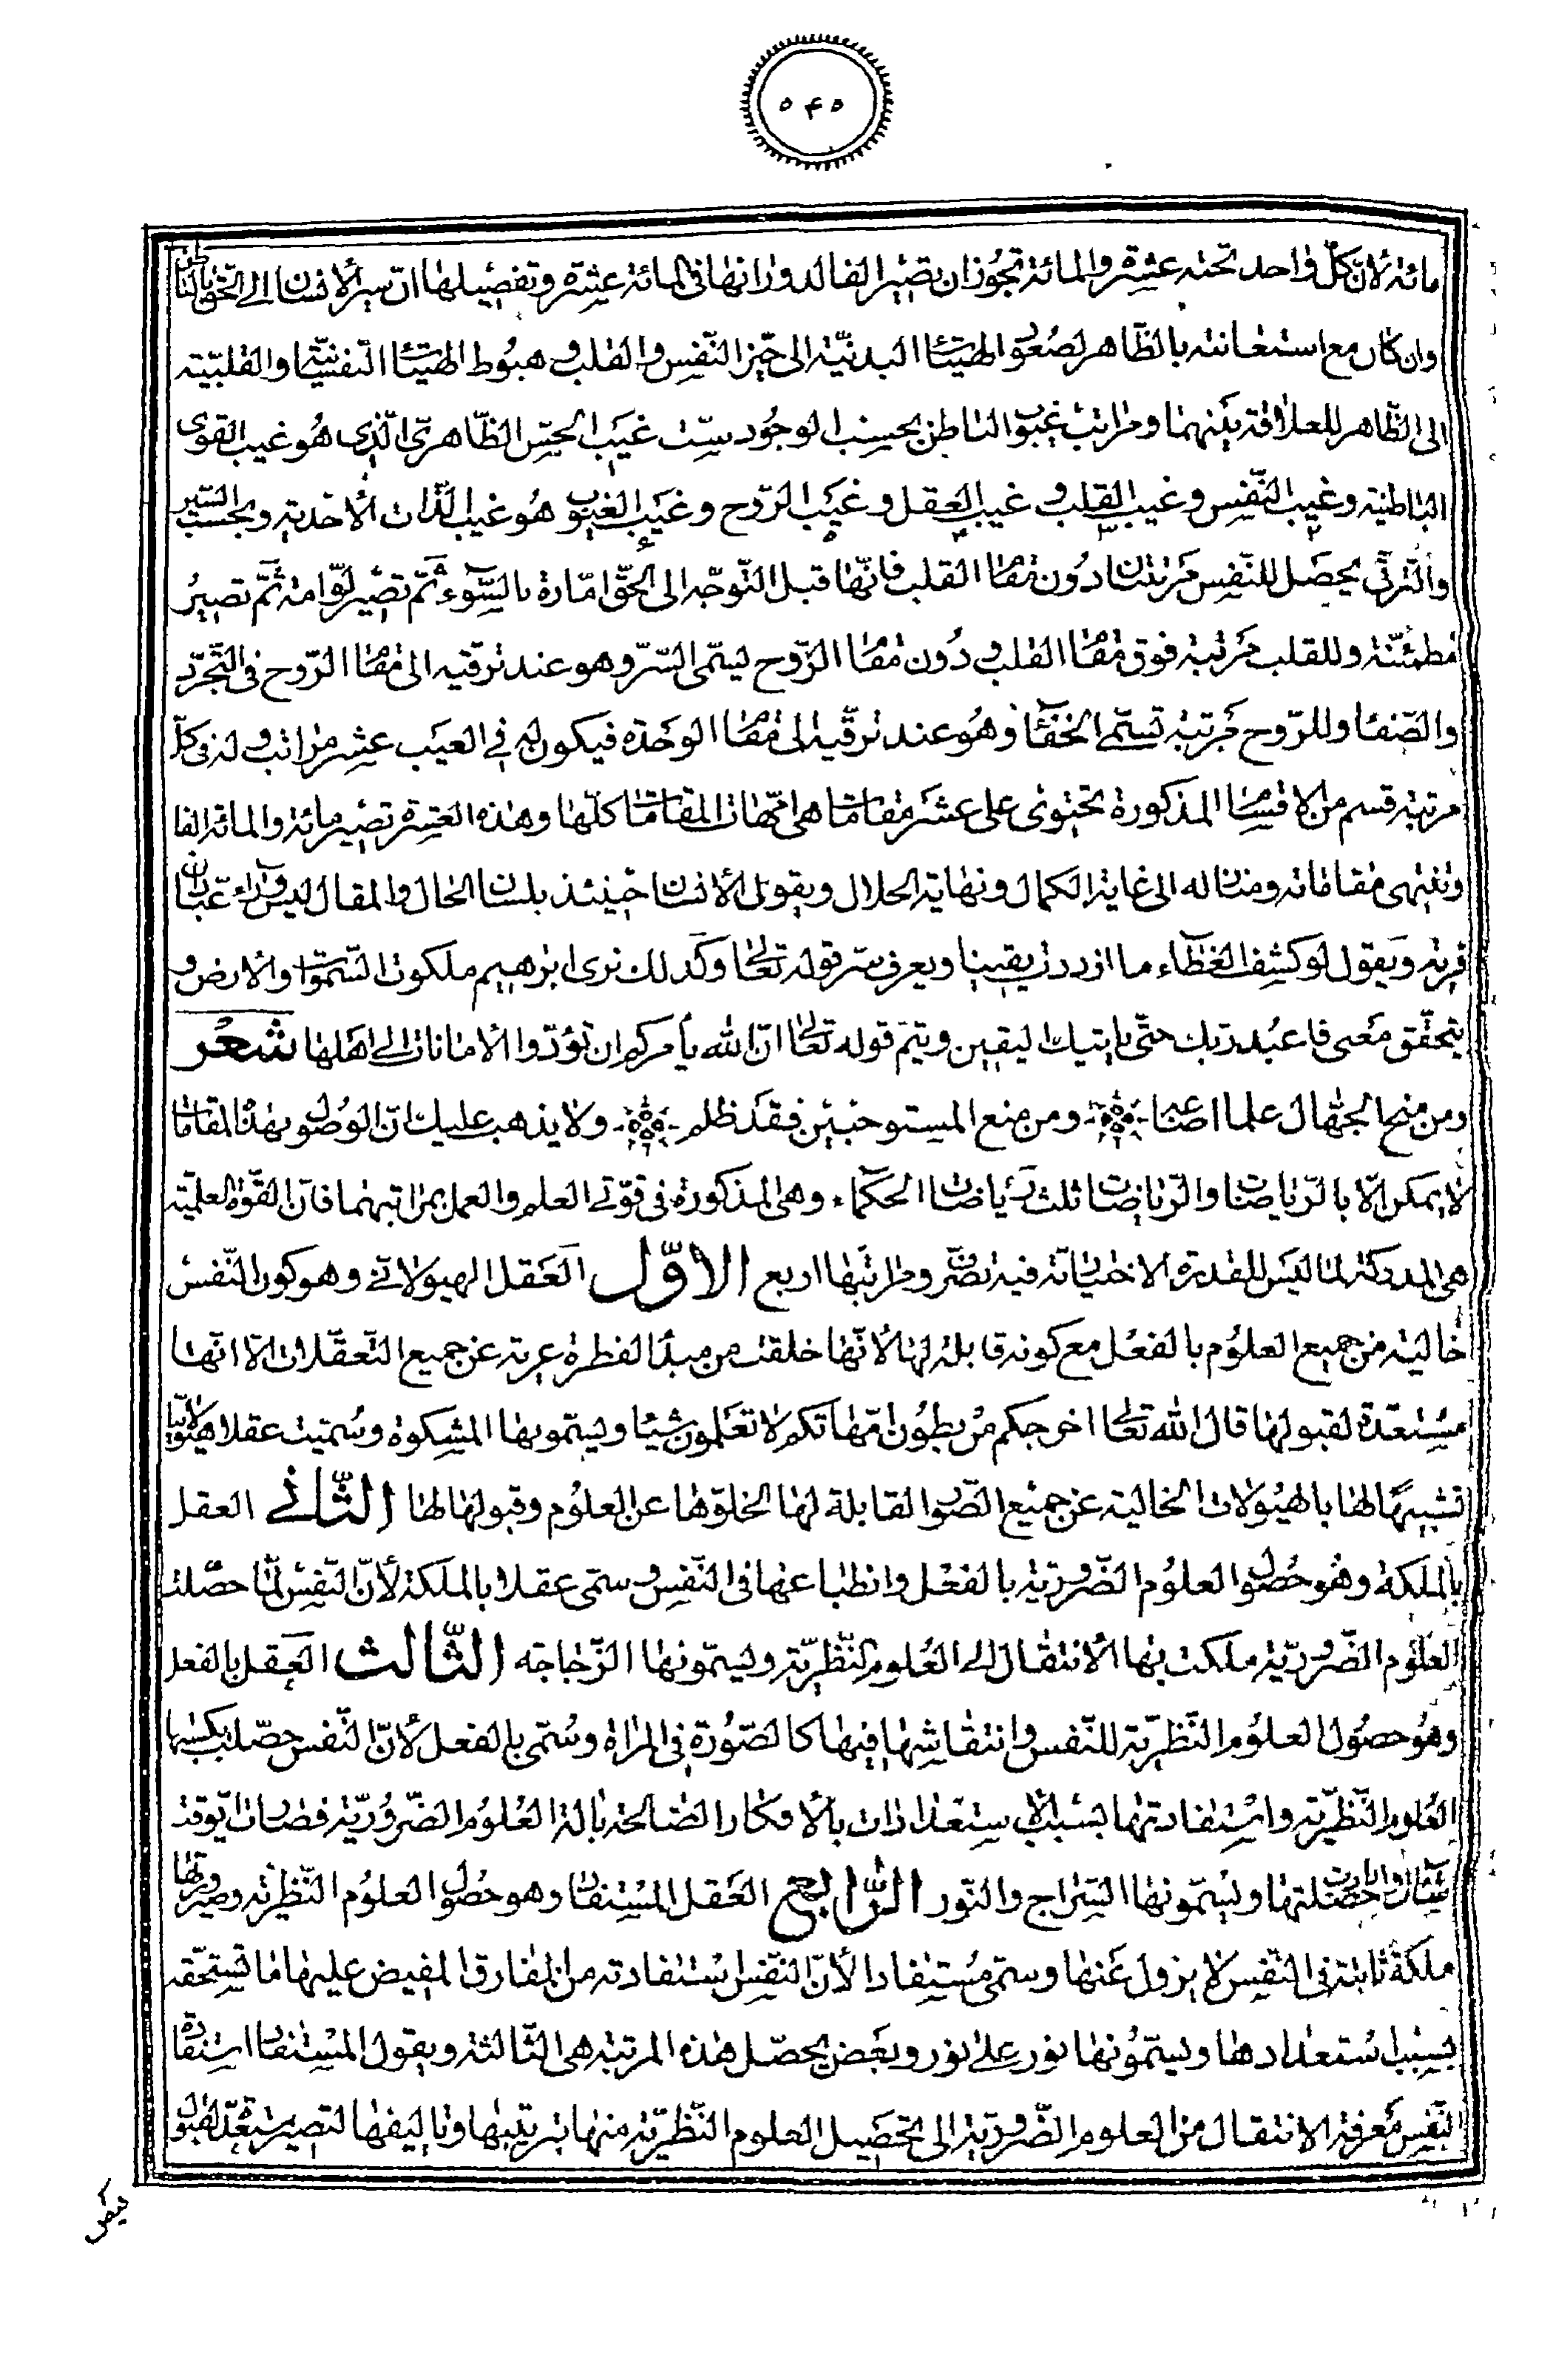 ٥٤٥
مائة لانّ كلّ واحد تحته عشرة والمائة تجوز ان تصير الفا لدورانها فى المائة عشرة وتفصيلها انّ سير الانسان الى الحقّ بالباطن
وان كان مع استعانته بالظّاهر لصعود الهيئات البدنيّة الى حيّز النّفس والقلب وهبوط الهيئات النّفسيّة والقلبيّة
الى الظّاهر للعلاقة بينهما ومراتب غيوب الباطن بحسب الوجود ستّ غيب الحسّ الظّاهرىّ الّذى هو غيب القوى
الباطنية وغيب النّفس وغيب القلب وغيب العقل وغيب الرّوح وغيب الغيوب هو غيب الذّات الاحدية وبحسب السّير
والتّرقّى يحصل للنّفس مرتبتان دون مقام القلب فانّها قبل التّوجّه الى الحقّ امّارة بالسّوء ثمّ تصير لوّامة ثمّ تصير
مطمئنّة وللقلب مرتبة فوق مقام القلب ودون مقام الرّوح يسمّى السّرّ وهو عند ترقّيه الى مقام الرّوح فى التّجرّد
والصّفا وللرّوح مرتبة تسمّى الخفىّ وهو عند ترقّيه الى مقام الوحدة فيكون له فى الغيب عشر مراتب وله فى كلّ
مرتبة قسم من الاقسام المذكورة تحتوى على عشر مقامات هى امّهات المقامات كلّها وهذه العشرة تصير مائة والمائة الفا
وتنتهى مقاماته ومنازله الى غاية الكمال ونهاية الجلال ويقول الانسان حينئذ بلسان الحال والمقال ليس وراء عبّادان
قرية ويقول لو كشف الغطاء ما ازددت يقينا ويعرف سرّ قوله تعالى وكذلك نرى ابرهيم ملكوت السّموات والارض و
يتحقّق معنى فاعبد ربك حتّى يأتيك اليقين ويتمّ قوله تعالى انّ الله يأمركم ان تؤدّوا الامانات الى اهلها شعر
ومن منح الجهّال علما اضاعه ومن منع المستوجبين فقد ظلم ولا يذهب عليك انّ الوصول بهذه المقامات
لا يمكن الّا بالرّياضات والرّياضات ثلث رياضات الحكماء وهى المذكورة فى قوّتى العلم والعمل بمراتبهما فانّ القوّة العلميّة
هى المدركة لما ليس للقدرة الاختياريّة فيه تصرّف ومراتبها اربع الاوّل العقل الهيولانى وهو كون النّفس
خالية من جميع العلوم بالفعل مع كونه قابلة لها لانّها خلقت من مبدأ الفطرة عرية عن جميع التّعقّلات الّا انّها
مستعدّة لقبولها قال الله تعالى اخرجكم من بطون امّهاتكم لا تعلمون شيئا ويسمّونها المشكوة وسميت عقلا هيولانيّا
تشبيهًا لها بالهيولات الخالية عن جميع الصّور القابلة لها لخلوّها عن العلوم وقبولها لها الثّانى العقل
بالملكة وهو حصول العلوم الضّروريّة بالفعل وانطباعها فى النّفس وسمّى عقلا بالملكة لأنّ النّفس لمّا حصلت
العلوم الضّروريّة ملكت بها الانتقال الى العلوم النّظريّة ويسمّونها الزّجاجة الثّالث العقل بالفعل
وهو حصول العلوم النّظريّة للنّفس وانتقاشها فيها كالصّورة فى المراة وسُمّى بالفعل لانّ النّفس حصلت بكسبها
العلوم النّظريّة واستفادتها بسبب الاستعدادات بالافكار الصّالحة بالة العلوم الضّروريّة فصارت يوقد
حصلتها ويسمّونها السّراج والنّور الرّابع العقل المستفاد وهو حصول العلوم النّظرية وصيرورتها
ملكة ثابتة فى النّفس لا يزول عنها وسمّى مستفادا لأنّ النّفس استفادته من المفارق المفيض عليها ما تستحقّه
بسبب استعدادها ويسمّونها نور على نور وبعض يحصّل هذه المرتبة هى الثّالثة ويقول المستفاد استفادة
النّفس معرفة الانتقال من العلوم الضّروريّة الى تحصيل العلوم النّظريّة منها بترتيبها وتاليفها لتصير مستعدّة لقبول